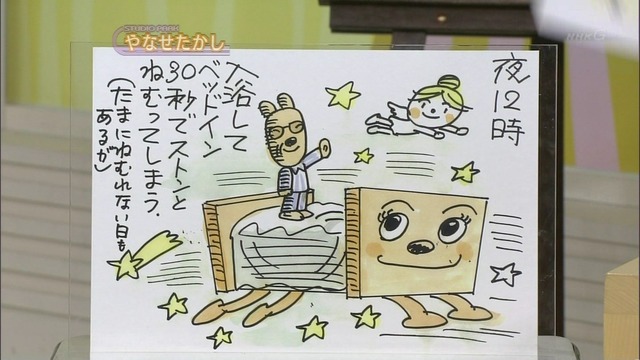 STUDIO PARK
やなせたかし
NHK G
夜12時
入浴して
ベッドイン
30秒でストンと
ねむってしまう.
(たまにねむれない日も
あるが)